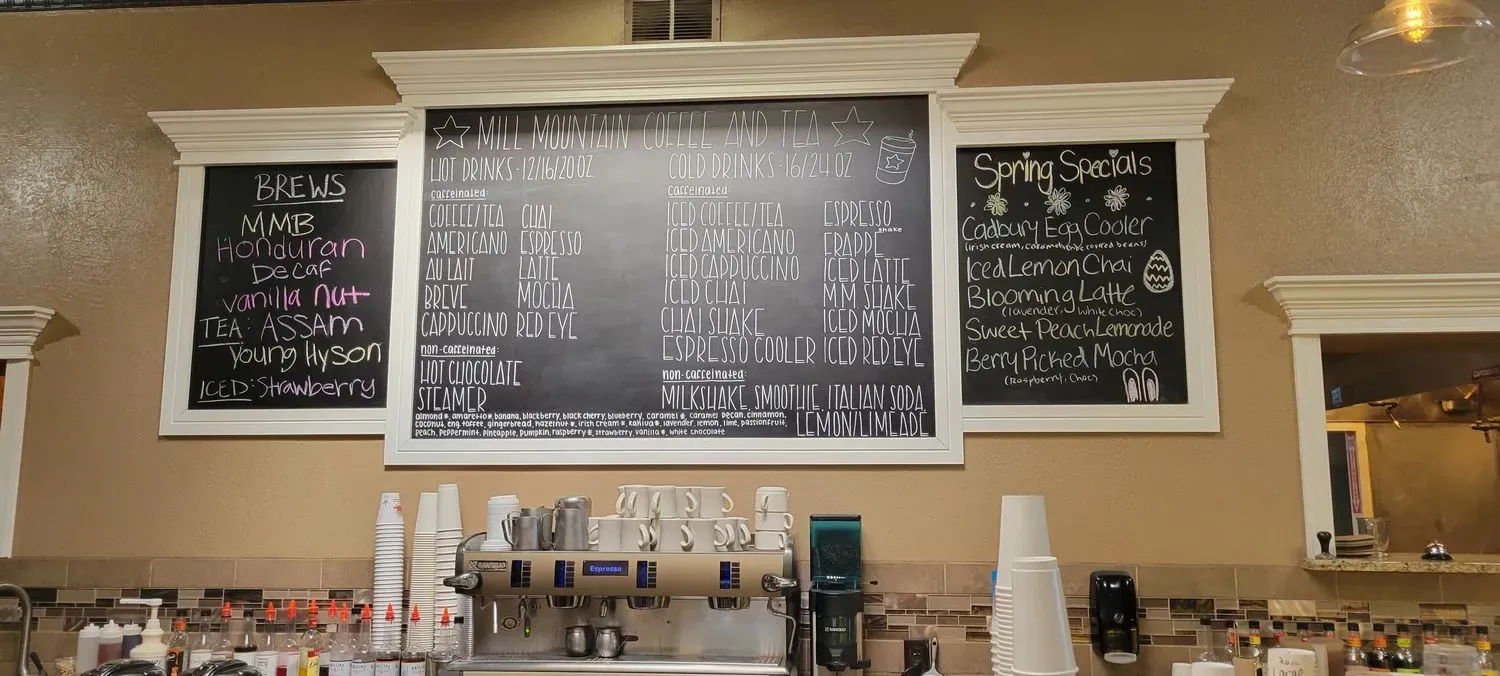 BREWS
MMB
Honduran
Decaf
vanilla nut
TEA: ASSAM
Young Hyson
ICED: Strawberry
MILL MOUNTAIN COFFEE AND TEA
HOT DRINKS - 12/16/20 OZ
caffeinated:
COFFEE/TEA CHAI
AMERICANO ESPRESSO
AU LAIT LATTE
BREVE MOCHA
CAPPUCCINO RED EYE
non-caffeinated:
HOT CHOCOLATE
STEAMER
COLD DRINKS - 16/24 OZ
caffeinated:
ICED COFFEE/TEA ESPRESSO shake
ICED AMERICANO FRAPPE
ICED CAPPUCCINO ICED LATTE
ICED CHAI M.M. SHAKE
CHAI SHAKE ICED MOCHA
ESPRESSO COOLER ICED RED EYE
non-caffeinated:
MILKSHAKE, SMOOTHIE, ITALIAN SODA,
LEMON/LIMEADE
almond *, amaretto *, banana, blackberry, black cherry, blueberry, caramel *, caramel pecan, cinnamon,
coconut, eng. toffee, gingerbread, hazelnut *, irish cream *, kahlua *, lavender, lemon, lime, passionfruit,
peach, peppermint, pineapple, pumpkin, raspberry *, strawberry, vanilla *, white chocolate
Spring Specials
Cadbury Egg Cooler
(irish cream, caramel, covered beans)
Iced Lemon Chai
Blooming Latte
(lavender, white choc)
Sweet Peach Lemonade
Berry Picked Mocha
(Raspberry, choc)
Espresso